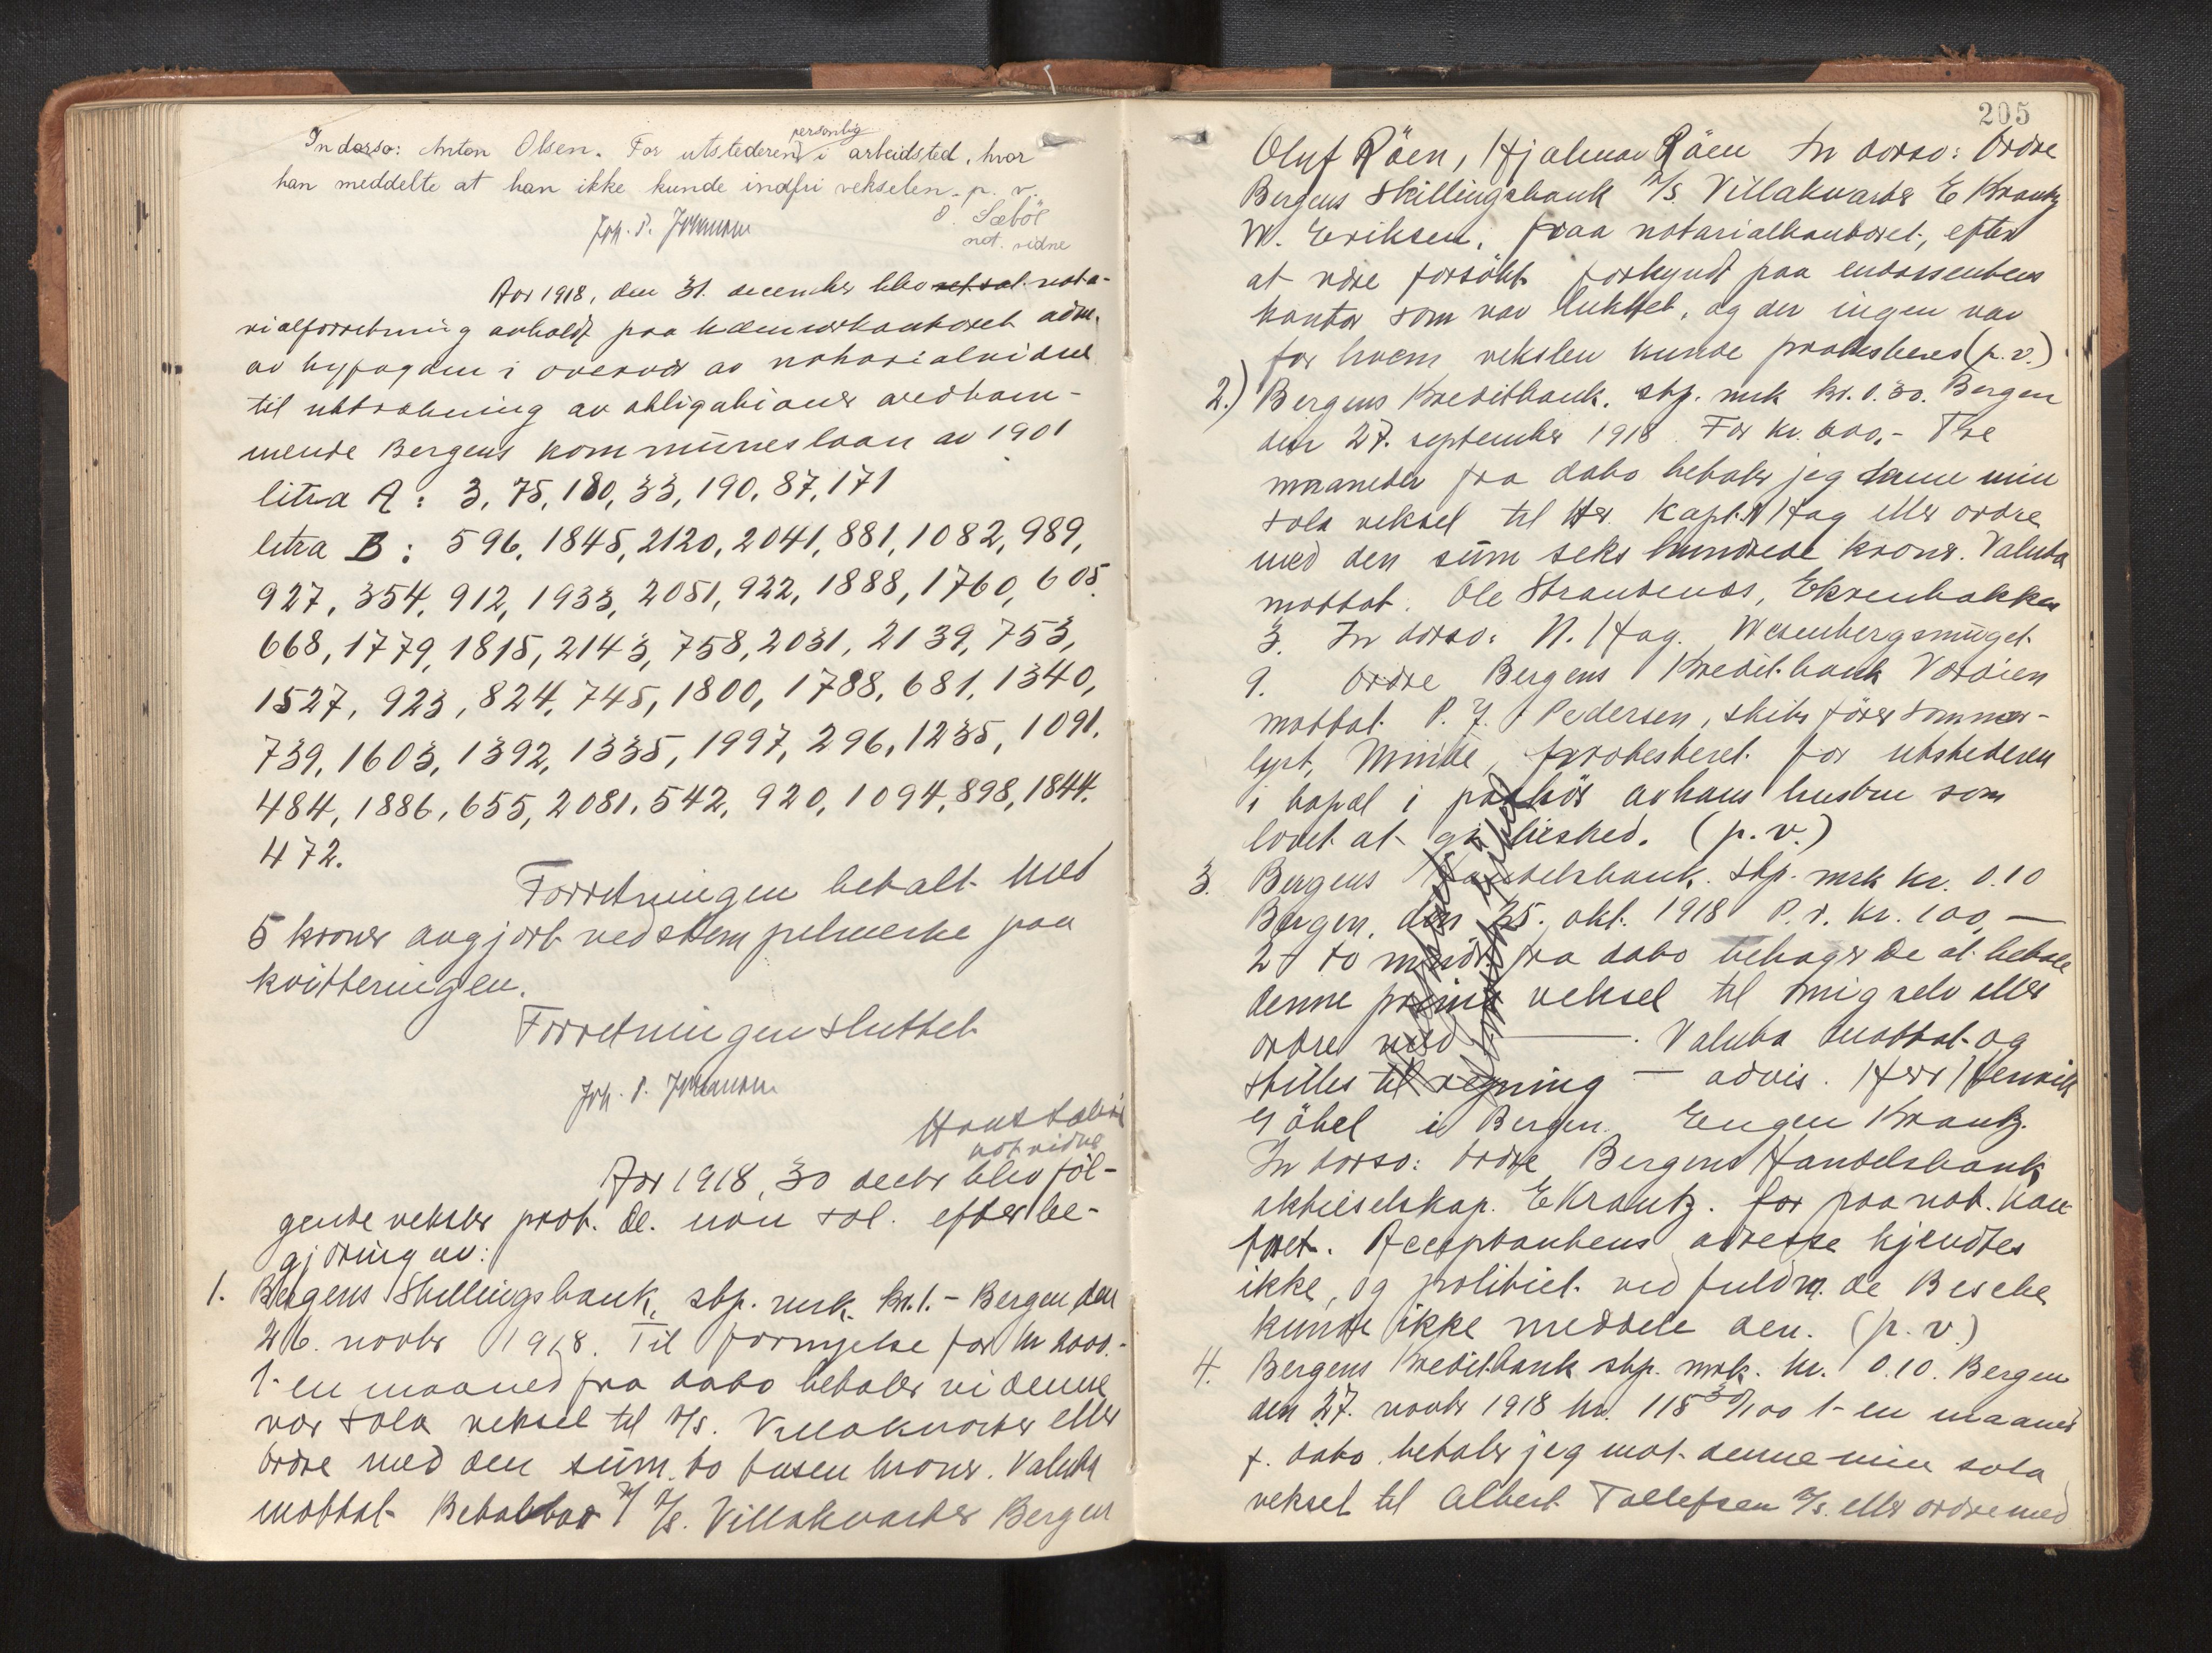 In dorso: Anton Olsen. For utstederen personlig i arbeidsted, hvor
han meddelte at han ikke kunde indfri vekselen. p. v.
Joh. P. Johannesen O. Sæböe
not. vidne
Aar 1918, den 31. december blev nota-
rialforretning avholdt paa kæmnerkontoret adm.
av byfogden i overvær av notarialvidne
til uttrækning av obligationer vedkom-
mende Bergens kommunes laan av 1901
litra A: 3, 75, 180, 33, 190, 87, 171
litra B: 596, 1845, 2120, 2041, 881, 1082, 989,
927, 354, 912, 1933, 2051, 922, 1888, 1760, 605.
668, 1779, 1815, 2143, 758, 2031, 2139, 753,
1527, 923, 824, 745, 1800, 1788, 681, 1340,
739, 1603, 1392, 1335, 1997, 296, 1235, 1091.
484, 1886, 655, 2081, 542, 920, 1094, 898, 1844.
472.
Forretningen betalt med
5 kroner avgjort ved stempelmerke paa
kvitteringen.
Forretningen sluttet
Joh. P. Johannesen
not. vidne
Aar 1918, 30 decbr blev föl-
gende veksler prot. de. non sol. efter be-
gjæring av:
1. Bergens Skillingsbank, stp. mrk. kr. 1.- Bergen den
26. novbr 1918. Til fornyelse for kr 2000.-
1- en maaned fra dato betaler vi denne
vor sola veksel til A/S. Villakvarter eller
ordre med den sum to tusen kroner. Valuta
mottat. Betalbar A/S. Villakvarter Bergen
205
Oluf Röen, Hjalmar Röen In dorso: Ordre
Bergens Skillingsbank A/S. Villakvarter E Krantz
W. Eriksen. paa notarialkontoret, efter
at være forsökt forkyndt paa endossentens
kontor som var lukket, og der ingen var
for hvem vekslen kunde protesteres (p. v.)
2.) Bergens Kreditbank. stp. mrk kr. 0.30. Bergen
den 27. september 1918. For kr. 600.- Tre
maaneder fra dato betaler jeg denne min
sola veksel til Hr. Kapt. N Hag eller ordre
med den sum seks hundrede kroner. Valuta
mottat. Ole Strandenæs, Ekrenbakken
3. In dorso: N. Hag. Wesenbergsmuget
9. Ordre Bergens Kreditbank Værdien
mottat. P. J. Pedersen, skibsförer Sommer-
lyst, Minde, protesteret for utstederen
i bopæl i paahör av hans hustru som
lovet at gi besked. (p. v.)
3. Bergens Handelsbank. stp. mrk kr. 0.10
Bergen, den 25. okt. 1918 P. r. kr. 100,—
2 - to mndr. fra dato behager De at betale
denne prima veksel til mig selv eller
ordre med — Valuta mottat og
stilles til regning — advis. Herr Henrik
Göbel i Bergen. Eugen Krantz.
In dorso: Ordre Bergens Handelsbank
aktieselskap. E Krantz. for paa not. kon-
toret. Acceptantens adresse kjendtes
ikke, og politiet ved fuldm. de Besche
kunde ikke meddele den. (p. v.)
4. Bergens Kreditbank stp. mrk. kr. 0.10. Bergen
den 27. novbr 1918 kr. 118 30/100 1- en maaned
f. dato betaler jeg mot denne min sola
veksel til Albert Tollefsen A/S. eller ordre med